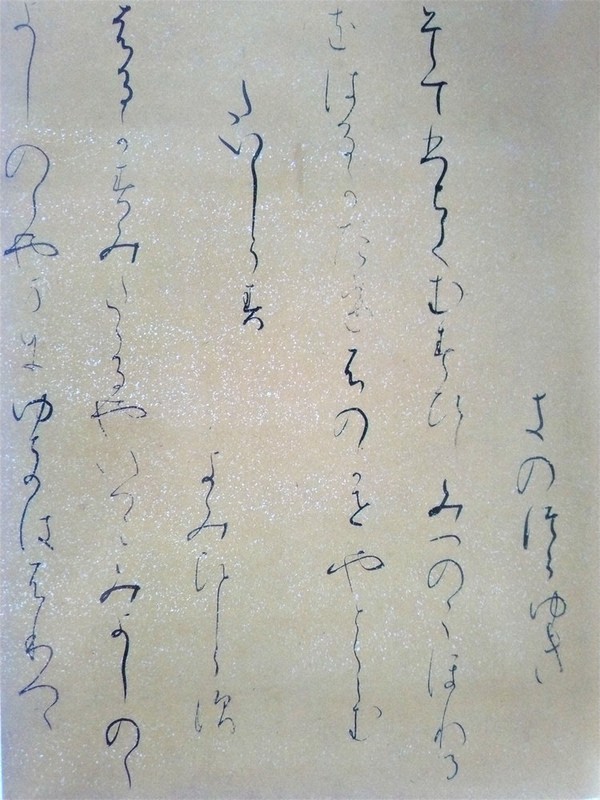 きのつらゆき
そてひちてむすひしみつのこほれる
をはるたつけふのかせやとくらむ
たいしらす
よみひとしらす
はるかすみたてるやいつこみよしのゝ
よしのゝやまにゆきはふりつゝ